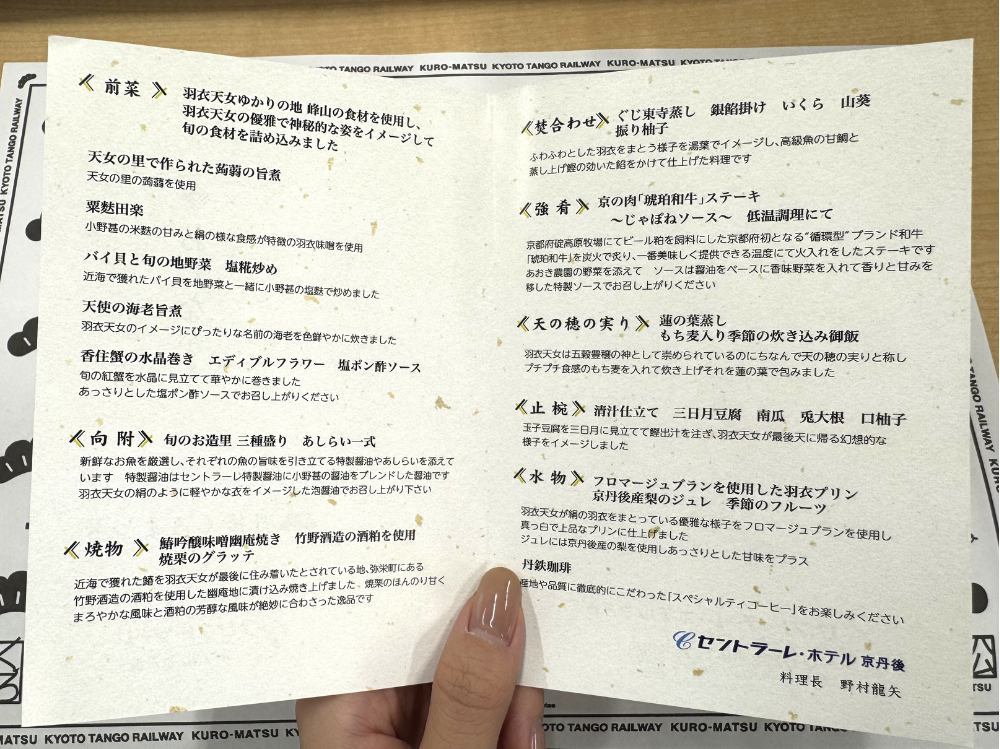 KYOTO TANGO RAILWAY KURO-MATSU KYOTO TANGO RAILWAY KURO-MATSU KYOTO TANGO RAILWAY KURO-MATSU
《前菜》
羽衣天女ゆかりの地 峰山の食材を使用し、
羽衣天女の優雅で神秘的な姿をイメージして
旬の食材を詰め込みました
天女の里で作られた蒟蒻の旨煮
天女の里の蒟蒻を使用
粟麩田楽
小野甚の米麩の甘みと絹の様な食感が特徴の羽衣味噌を使用
バイ貝と旬の地野菜 塩糀炒め
近海で獲れたバイ貝を地野菜と一緒に小野甚の塩麩で炒めました
天使の海老旨煮
羽衣天女のイメージにぴったりな名前の海老を色鮮やかに炊きました
香住蟹の水晶巻き エディブルフラワー 塩ポン酢ソース
旬の紅蟹を水晶に見立てて華やかに巻きました
あっさりとした塩ポン酢ソースでお召し上がりください
《向附》 旬のお造里 三種盛り あしらい一式
新鮮なお魚を厳選し、それぞれの魚の旨味を引き立てる特製醤油やあしらいを添えて
います 特製醤油はセントラーレ特製醤油に小野甚の醤油をブレンドした醤油です
羽衣天女の絹のように軽やかな衣をイメージした泡醤油でお召し上がり下さい
《焼物》 鰆吟醸味噌幽庵焼き 竹野酒造の酒粕を使用
焼栗のグラッテ
近海で獲れた鰆を羽衣天女が最後に住み着いたとされている地、弥栄町にある
竹野酒造の酒粕を使用した幽庵地に漬け込み焼き上げました 焼栗のほんのり甘く
まろやかな風味と酒粕の芳醇な風味が絶妙に合わさった逸品です
《焚合わせ》 ぐじ東寺蒸し 銀餡掛け いくら 山葵
振り柚子
ふわふわとした羽衣をまとう様子を湯葉でイメージし、高級魚の甘鯛と
蒸し上げ鰹の効いた餡をかけて仕上げた料理です
《強肴》 京の肉「琥珀和牛」ステーキ
～じゃぽねソース～ 低温調理にて
京都府碇高原牧場にてビール粕を飼料にした京都府初となる“循環型”ブランド和牛
「琥珀和牛」を炭火で炙り、一番美味しく提供できる温度にて火入れをしたステーキです
あおき農園の野菜を添えて ソースは醤油をベースに香味野菜を入れて香りと甘みを
移した特製ソースでお召し上がりください
《天の穂の実り》 蓮の葉蒸し
もち麦入り季節の炊き込み御飯
羽衣天女は五穀豊穣の神として崇められているのにちなんで天の穂の実りと称し
プチプチ食感のもち麦を入れて炊き上げそれを蓮の葉で包みました
《止椀》 清汁仕立て 三日月豆腐 南瓜 兎大根 口柚子
玉子豆腐を三日月に見立てて鰹出汁を注ぎ、羽衣天女が最後天に帰る幻想的な
様子をイメージしました
《水物》 フロマージュブランを使用した羽衣プリン
京丹後産梨のジュレ 季節のフルーツ
羽衣天女が絹の羽衣をまとっている優雅な様子をフロマージュブランを使用し
真っ白で上品なプリンに仕上げました
ジュレには京丹後産の梨を使用しあっさりとした甘味をプラス
丹鉄珈琲
産地や品質に徹底的にこだわった「スペシャルティコーヒー」をお楽しみください
セントラーレ・ホテル 京丹後
料理長 野村龍矢
KYOTO TANGO RAILWAY KURO-MATSU KYOTO TANGO RAILWAY KURO-MATSU